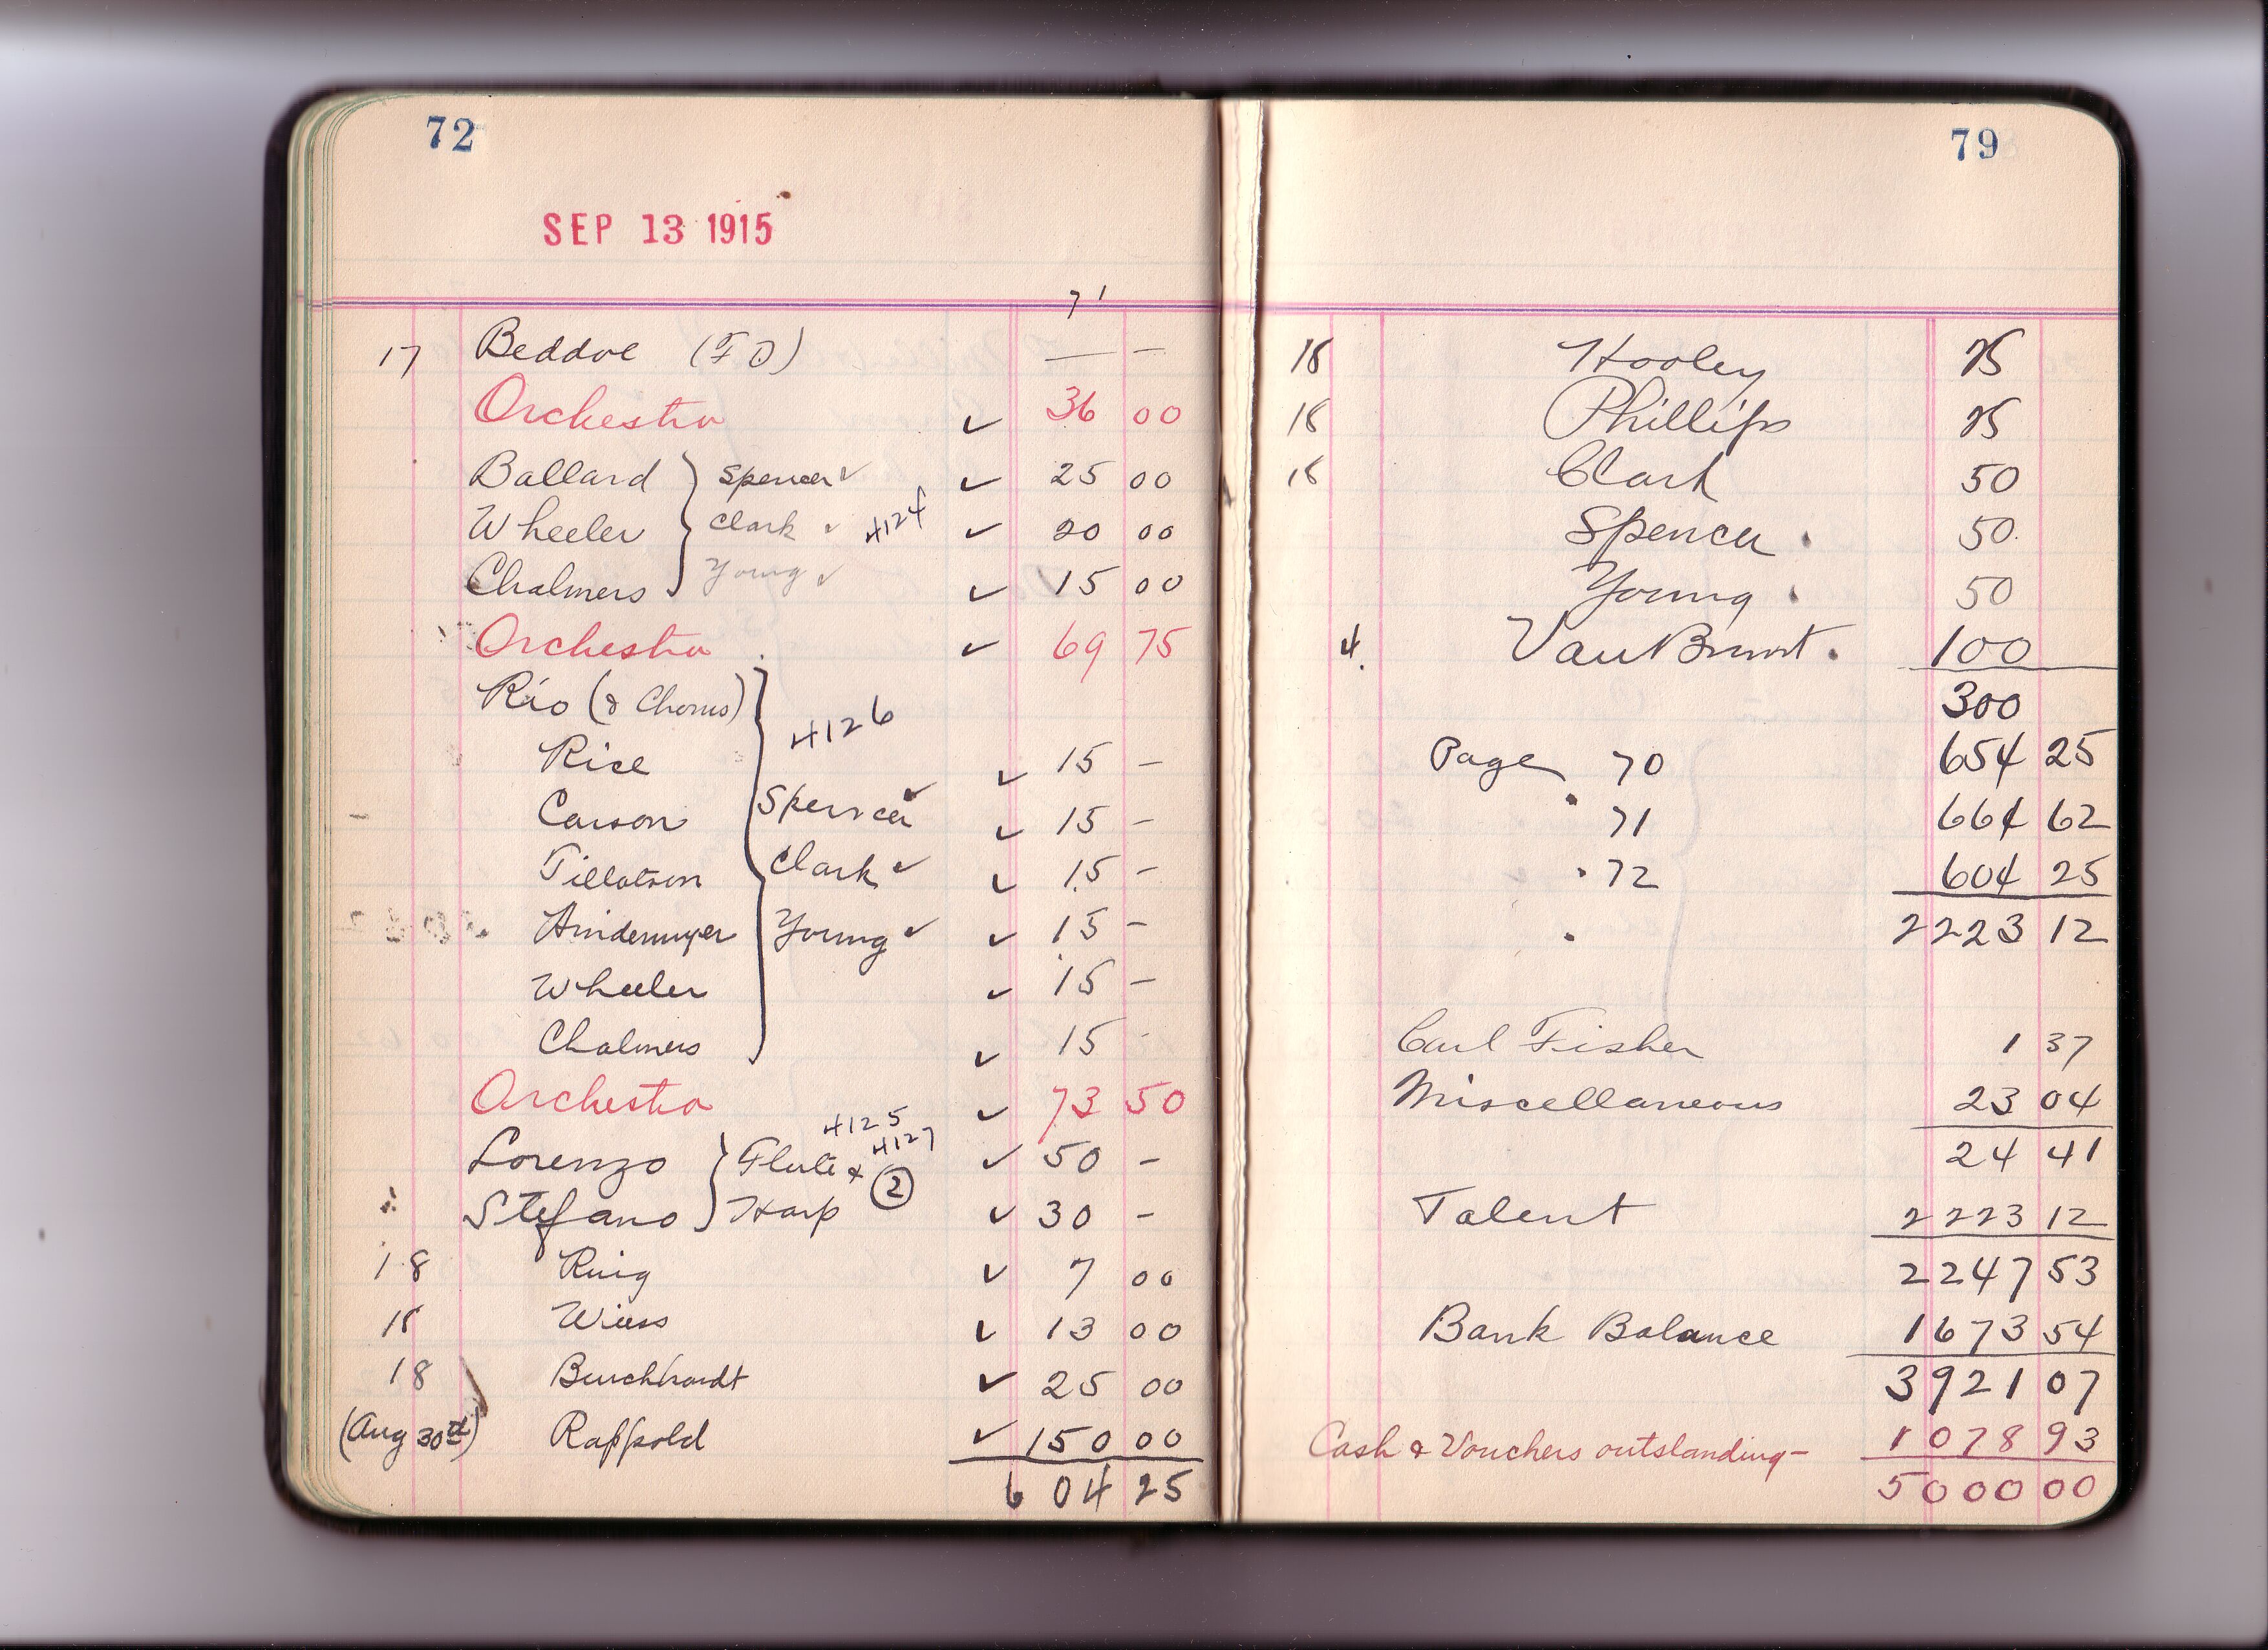 72
SEP 13 1915
71
17 Beddoe (FO) — —
Orchestra ✓ 36 00
Ballard Spencer ✓ ✓ 25 00
Wheeler Clark ✓ 4124 ✓ 20 00
Chalmers Young ✓ ✓ 15 00
Orchestra ✓ 69 75
Rio (& Chorus) 4126
Rice ✓ 15 –
Carson Spencer ✓ ✓ 15 –
Tillotson Clark ✓ ✓ 15 –
Hindermyer Young ✓ ✓ 15 –
Wheeler ✓ 15 –
Chalmers ✓ 15 -
Orchestra ✓ 73 50
4125
Lorenzo Flute & 4127 ✓ 50 –
Stefano Harp 2 ✓ 30 –
18 Ruig ✓ 7 00
18 Wiess ✓ 13 00
18 Burckhardt ✓ 25 00
(Aug 30th) Rappold ✓ 150 00
604 25
79
18 Hooley 25
18 Phillips 25
18 Clark 50
Spencer 50
Young 50
4. Van Brunt 100
300
Page 70 654 25
" 71 664 62
" 72 604 25
2223 12
Carl Fisher 1 37
Miscellaneous 23 04
24 41
Talent 2223 12
2247 53
Bank Balance 1673 54
3921 07
Cash & Vouchers outstanding – 1078 93
5000 00